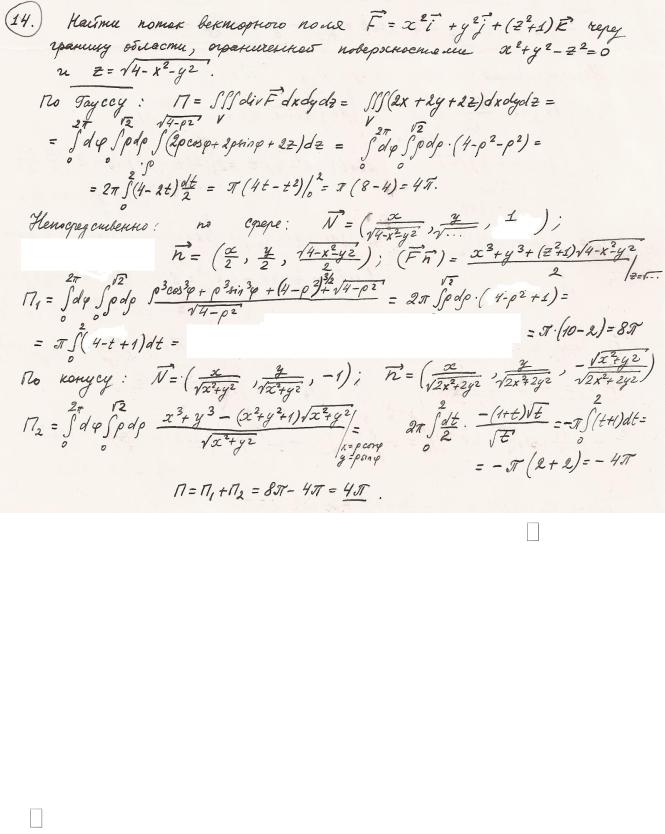 14. Найти поток векторного поля F⃗ = x²i⃗ + y²j⃗ + (z²+1)k⃗ через
границу области, ограниченной поверхностями x²+y²−z²=0
и z=√(4−x²−y²).
По Гауссу: П = ∭_V div F⃗ dxdydz = ∭_V (2x+2y+2z)dxdydz =
= ∫₀^{2π} dφ ∫₀^{√2} ρdρ ∫_ρ^{√(4−ρ²)} (2ρcosφ + 2ρsinφ + 2z)dz = ∫₀^{2π} dφ ∫₀^{√2} ρdρ·(4−ρ²−ρ²) =
= 2π ∫₀² (4−2t) dt/2 = π(4t−t²)|₀² = π(8−4) = 4π.
Непосредственно: по сфере: N⃗ = (x/√(4−x²−y²), y/√..., 1);
n⃗ = (x/2, y/2, √(4−x²−y²)/2); (F⃗n⃗) = (x³+y³+(z²+1)√(4−x²−y²))/2 |_{z=√...}
П₁ = ∫₀^{2π} dφ ∫₀^{√2} ρdρ (ρ³cos³φ + ρ³sin³φ + (4−ρ²)^{3/2} + √(4−ρ²))/√(4−ρ²) = 2π ∫₀^{√2} ρdρ·(4−ρ²+1) =
= π ∫₀² (4−t+1)dt = = π·(10−2) = 8π
По конусу: N⃗ = (x/√(x²+y²), y/√(x²+y²), −1); n⃗ = (x/√(2x²+2y²), y/√(2x²+2y²), −√(x²+y²)/√(2x²+2y²))
П₂ = ∫₀^{2π} dφ ∫₀^{√2} ρdρ (x³+y³−(x²+y²+1)√(x²+y²))/√(x²+y²) |_{x=ρcosφ, y=ρsinφ} = 2π ∫₀² dt/2 · (−(1+t)√t)/√t = −π ∫₀² (t+1)dt =
= −π(2+2) = −4π
П = П₁ + П₂ = 8π − 4π = 4π.